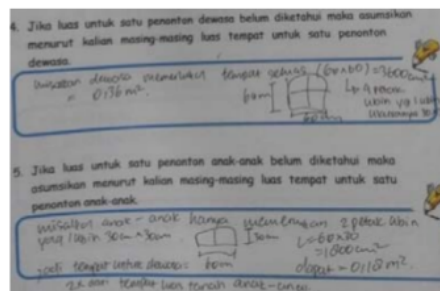 4. Jika luas untuk satu penonton dewasa belum diketahui maka asumsikan
menurut kalian masing-masing luas tempat untuk satu penonton
dewasa.
dewasa memerlukan tempat seluas (60x60) = 3600 cm²
= 0,36 m².
60cm
4 petak
ubin yg
60cm
5. Jika luas untuk satu penonton anak-anak belum diketahui maka
asumsikan menurut kalian masing-masing luas tempat untuk satu
penonton anak-anak.
misalkan anak-anak hanya memerlukan 2 petak ubin
yang 1 ubin 30cm x 30cm.
30cm
L = 60x30
= 1800 cm²
60cm
jadi tempat untuk dewasa =
dapat = 0,18 m².
2x dari tempat